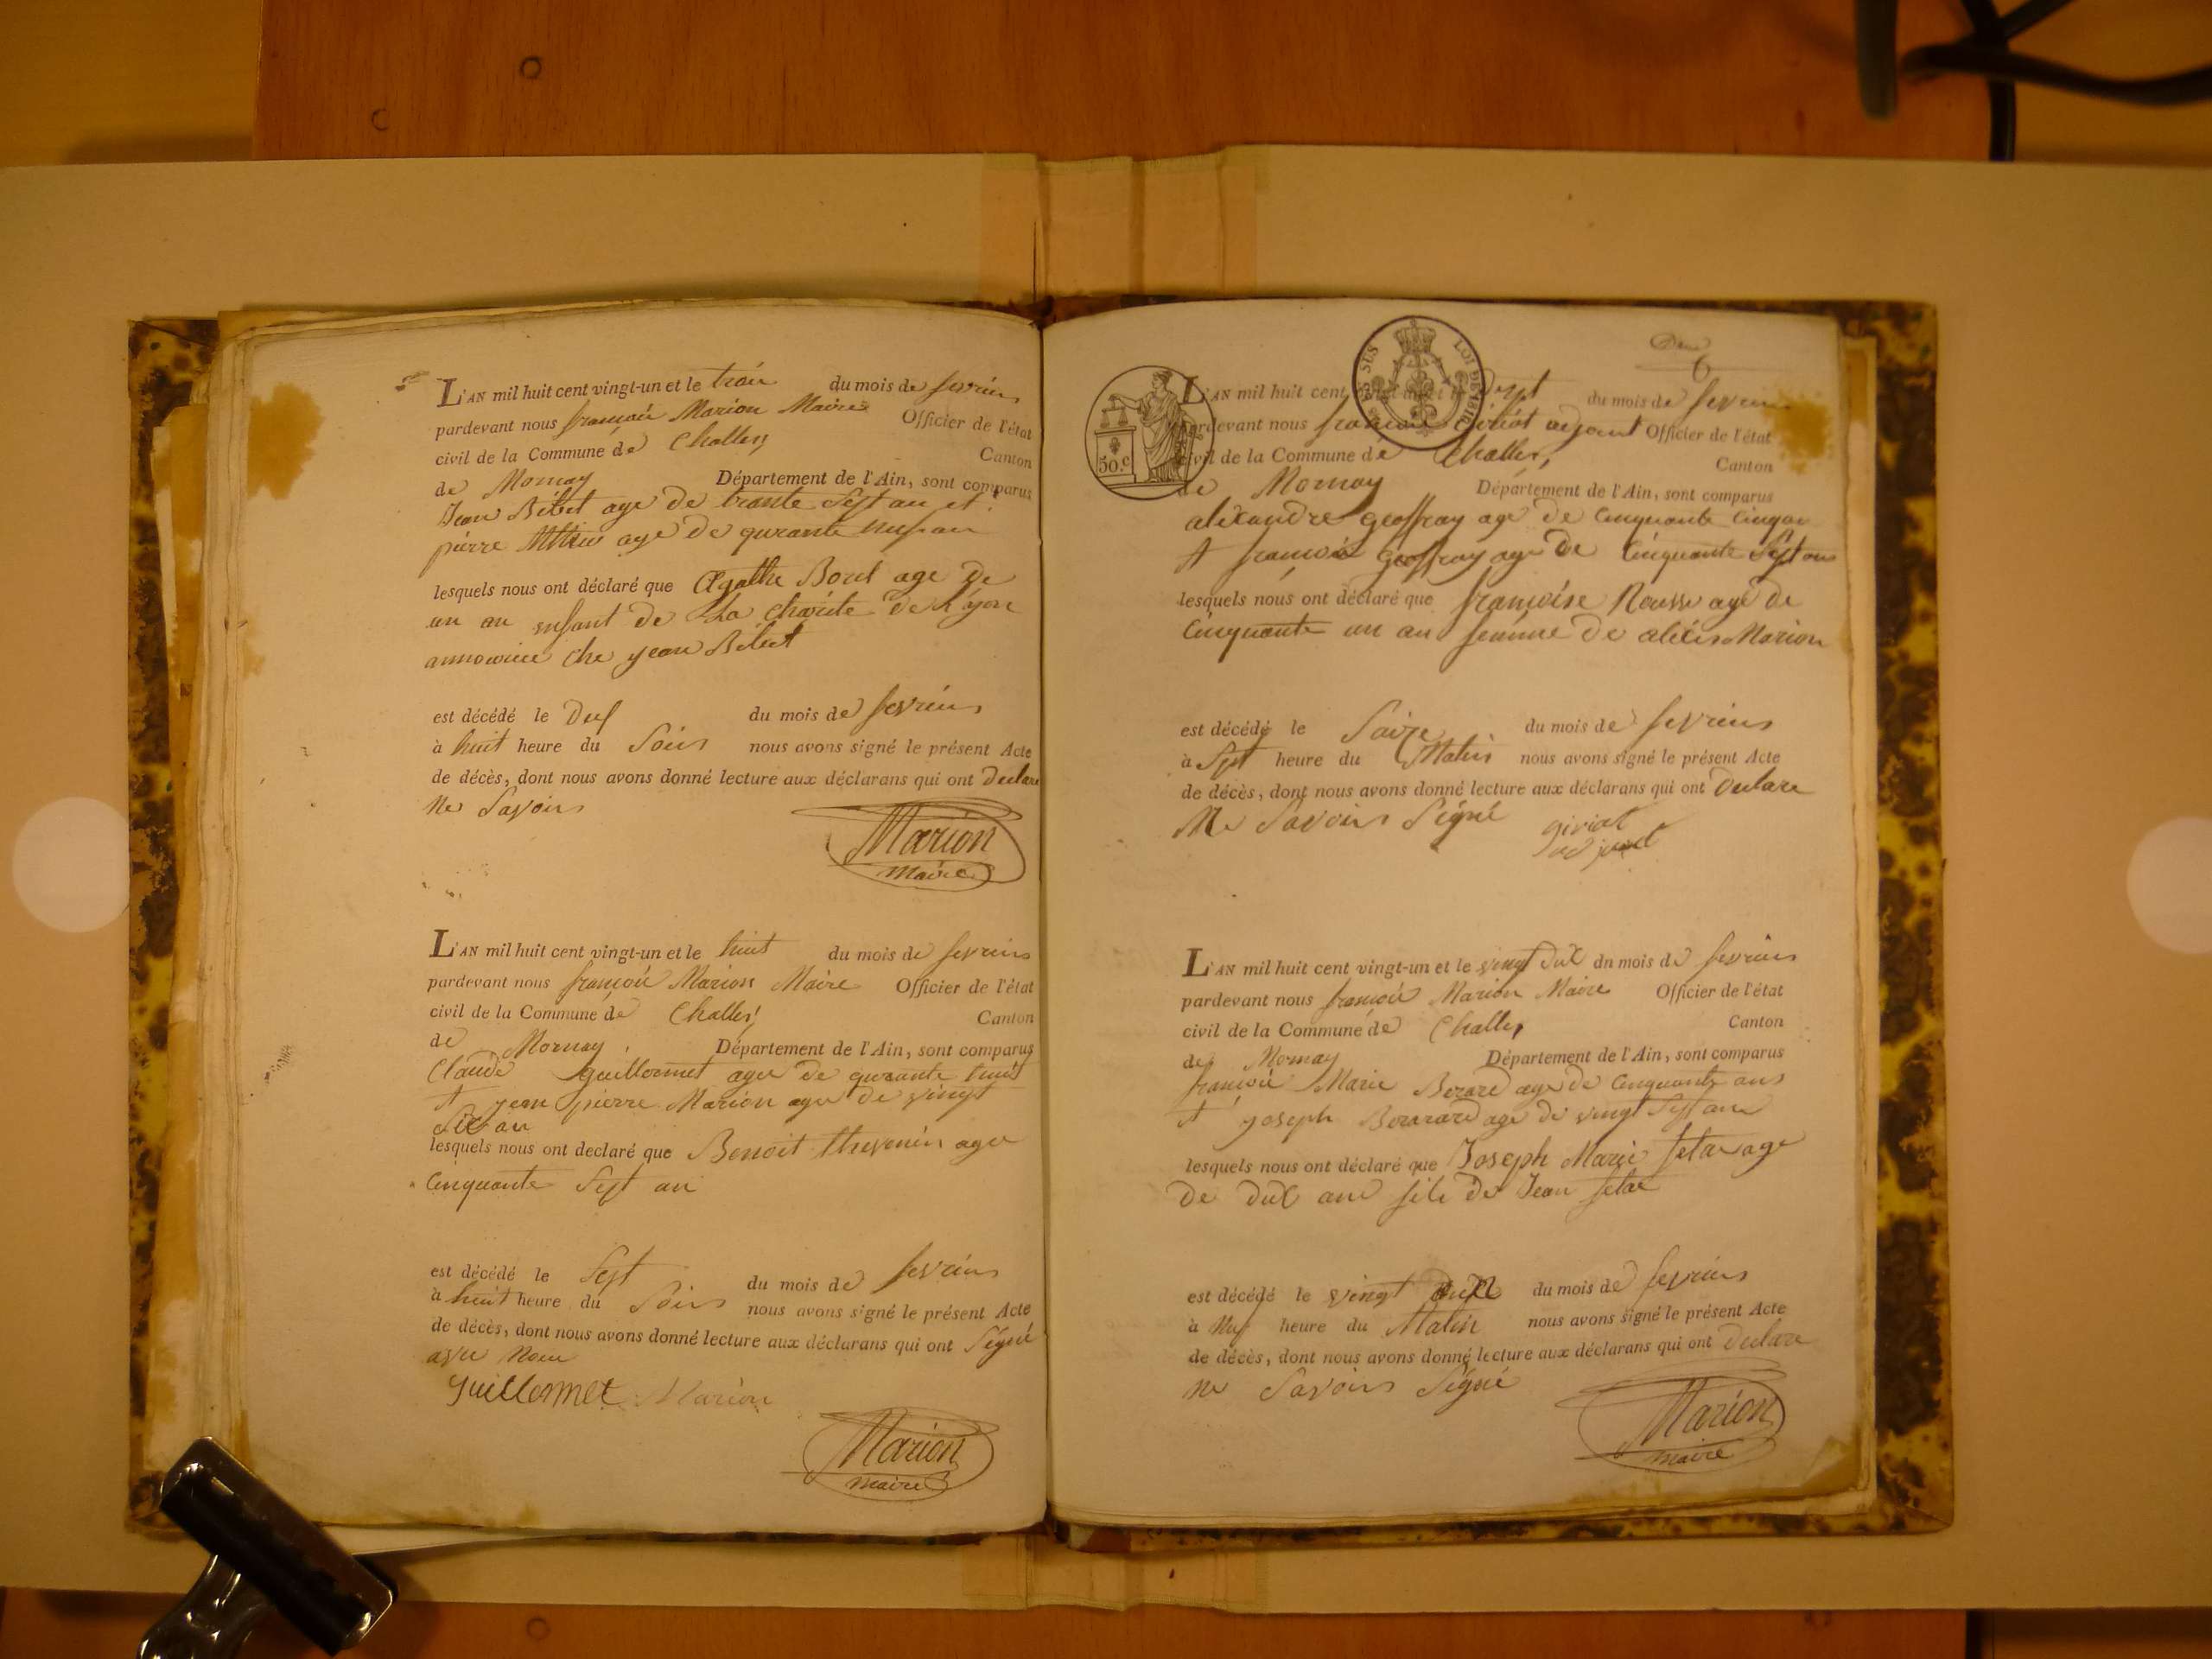 L'AN mil huit cent vingt-un et le trois du mois de fevriers
pardevant nous françois Marion Maire Officier de l'état
civil de la Commune de Challes, Canton
de Mornay Département de l'Ain, sont comparus
Jean Bibet age de trante Sept an et
pierre age de qurante nuf an
lesquels nous ont déclaré que Agathe age de
un an enfant de La charite de Lyon
che jean Bibet
est décédé le du mois de fevriers
à huit heure du Soirs nous avons signé le présent Acte
de décès, dont nous avons donné lecture aux déclarans qui ont Declare
Ne Savoirs
Marion
maire
L'AN mil huit cent vingt-un et le huit du mois de fevriers
pardevant nous françois Marion Maire Officier de l'état
civil de la Commune de Challes Canton
de Mornay Département de l'Ain, sont comparus
Claude guillermet ager de qurante huit
et jean pierre Marion ager de vingt
Six an
lesquels nous ont declaré que Benoit thevenin ager
Cinquante Sept an
est décédé le Sept du mois de fevriers
à huit heure du Soirs nous avons signé le présent Acte
de décès, dont nous avons donné lecture aux déclarans qui ont Signé
avec nous
guillermet Marion
Marion
maire
6
SUS LOI DE 1816
50.c
L'AN mil huit cent et le Sept du mois de fevriers
pardevant nous françois giriat adjoint Officier de l'état
civil de la Commune de Challes, Canton
de Mornay Département de l'Ain, sont comparus
alexandre geoffray age de Cinquante Cinq an
et françois geoffray age de Cinquante Sept ans
lesquels nous ont déclaré que françoise Rousse age de
Cinquante un an femme de alexis Marion
est décédé le du mois de fevriers
à Sept heure du Matin nous avons signé le présent Acte
de décès, dont nous avons donné lecture aux déclarans qui ont Declare
Ne Savoirs Signé
giriat
adjoint
L'AN mil huit cent vingt-un et le vingt Dux du mois de fevriers
pardevant nous françois Marion Maire Officier de l'état
civil de la Commune de Challes Canton
de Mornay Département de l'Ain, sont comparus
françois Marie Berard age de Cinquante ans
et joseph age de vingt Sept ans
lesquels nous ont déclaré que Joseph Marie age
de Dux ans fils de Jean
est décédé le vingt Duxe du mois de fevriers
à Nuf heure du Matin nous avons signé le présent Acte
de décès, dont nous avons donné lecture aux déclarans qui ont Declare
ne Savoirs Signé
Marion
maire